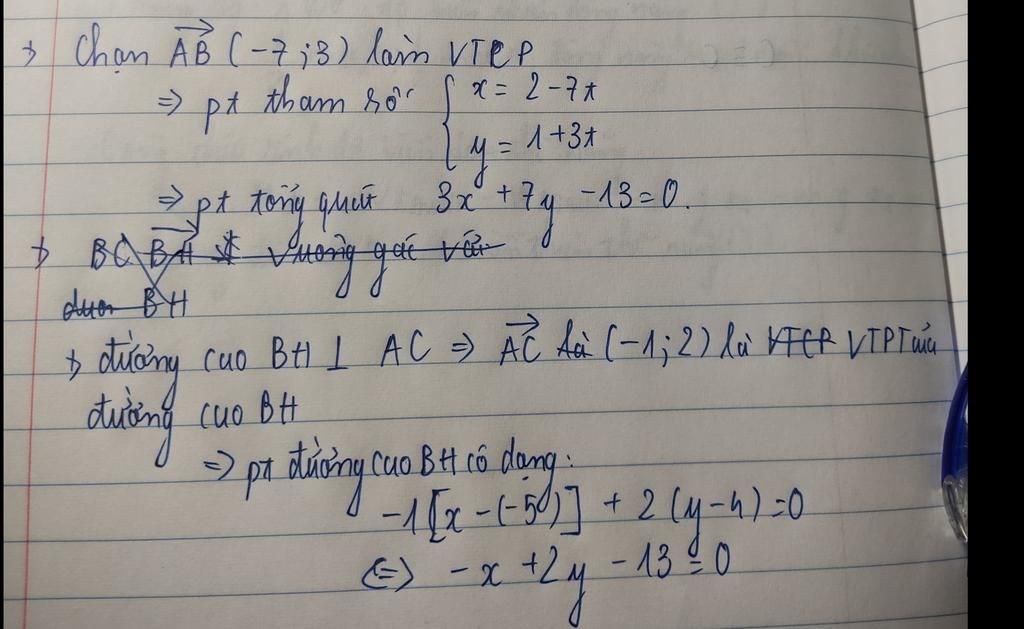 → Chọn AB (-7 ; 3) làm VTCP
⇒ pt tham số { x = 2 - 7t
y = 1 + 3t
⇒ pt tổng quát 3x + 7y - 13 = 0.
→ BC BH vuông góc với
BH
→ đường cao BH ⊥ AC ⇒ AC là (-1 ; 2) là VTCP VTPT của
đường cao BH
⇒ pt đường cao BH có dạng :
-1 [x - (-5)] + 2 (y - 4) = 0
⇔ - x + 2y - 13 = 0